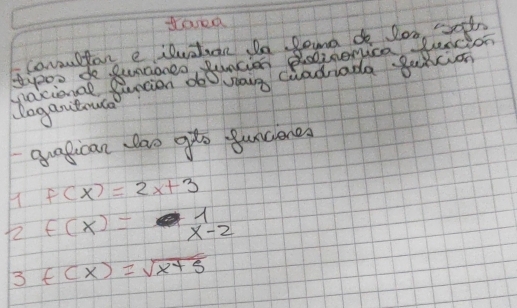 tarea
- consultar e ilustrar la forma de los sgts
tipos de funciones función polinomica función
racional función de raiz cuadrada función
logaritmica
- graficar las gts funciones
1 f(x) = 2x+3
2 f(x) = 1
x-2
3 f(x) = √x+5